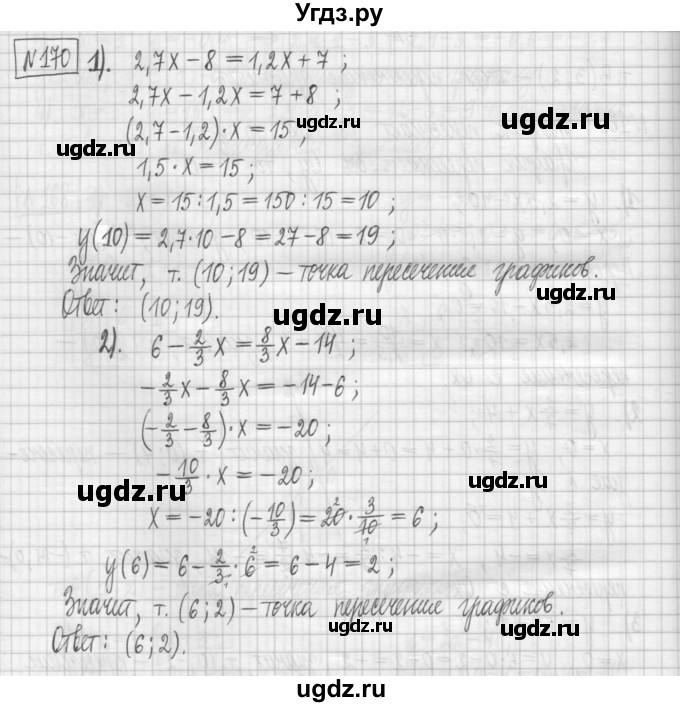 Угдз.ру
№170 1). 2,7x − 8 = 1,2x + 7 ;
2,7x − 1,2x = 7 + 8 ;
ugdz.ru
ugdz.ru
(2,7 − 1,2) · x = 15 ;
ugdz.ru
1,5 · x = 15 ;
x = 15 : 1,5 = 150 : 15 = 10 ;
y(10) = 2,7 · 10 − 8 = 27 − 8 = 19 ;
Значит, т. (10 ; 19) − точка пересечения графиков.
ugdz.ru
Ответ: (10 ; 19).
ugdz.ru
2). 6 − 2/3 x = 8/3 x − 14 ;
− 2/3 x − 8/3 x = −14 − 6 ;
(− 2/3 − 8/3) · x = −20 ;
− 10/3 · x = −20 ;
ugdz.ru
ugdz.ru
x = −20 : (− 10/3) = 20 · 3/10 = 6 ;
ugdz.ru
y(6) = 6 − 2/3 · 6 = 6 − 4 = 2 ;
Значит, т. (6 ; 2) − точка пересечения графиков.
ugdz.ru
Ответ: (6 ; 2).
ugdz.ru
ugdz.ru